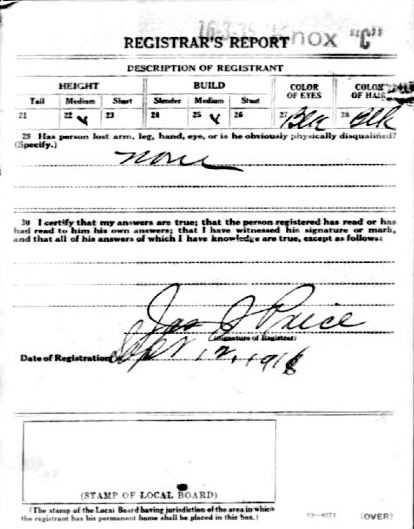 16-3-35 Knox "C"
REGISTRAR'S REPORT
DESCRIPTION OF REGISTRANT
HEIGHT BUILD COLOR OF EYES COLOR OF HAIR
Tall Medium Short Slender Medium Stout
21 22 ✓ 23 24 25 ✓ 26 27 Blk 28 Blk
29 Has person lost arm, leg, hand, eye, or is he obviously physically disqualified?
(Specify.)
none
30 I certify that my answers are true; that the person registered has read or has
had read to him his own answers; that I have witnessed his signature or mark,
and that all of his answers of which I have knowledge are true, except as follows:
Jas J Price
(Signature of Registrar)
Date of Registration Sept 12, 1918
(STAMP OF LOCAL BOARD)
(The stamp of the Local Board having jurisdiction of the area in which
the registrant has his permanent home shall be placed in this box.)
(OVER)